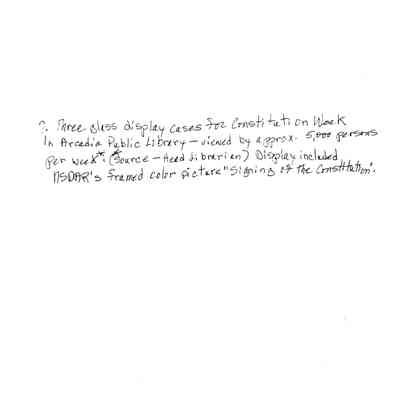 ?. Three glass display cases for Constitution Week
In Arcadia Public Library – viewed by approx. 5,000 persons
per week*. (*Source – Head Librarian) Display included
NSDAR's framed color picture "Signing of the Constitution".